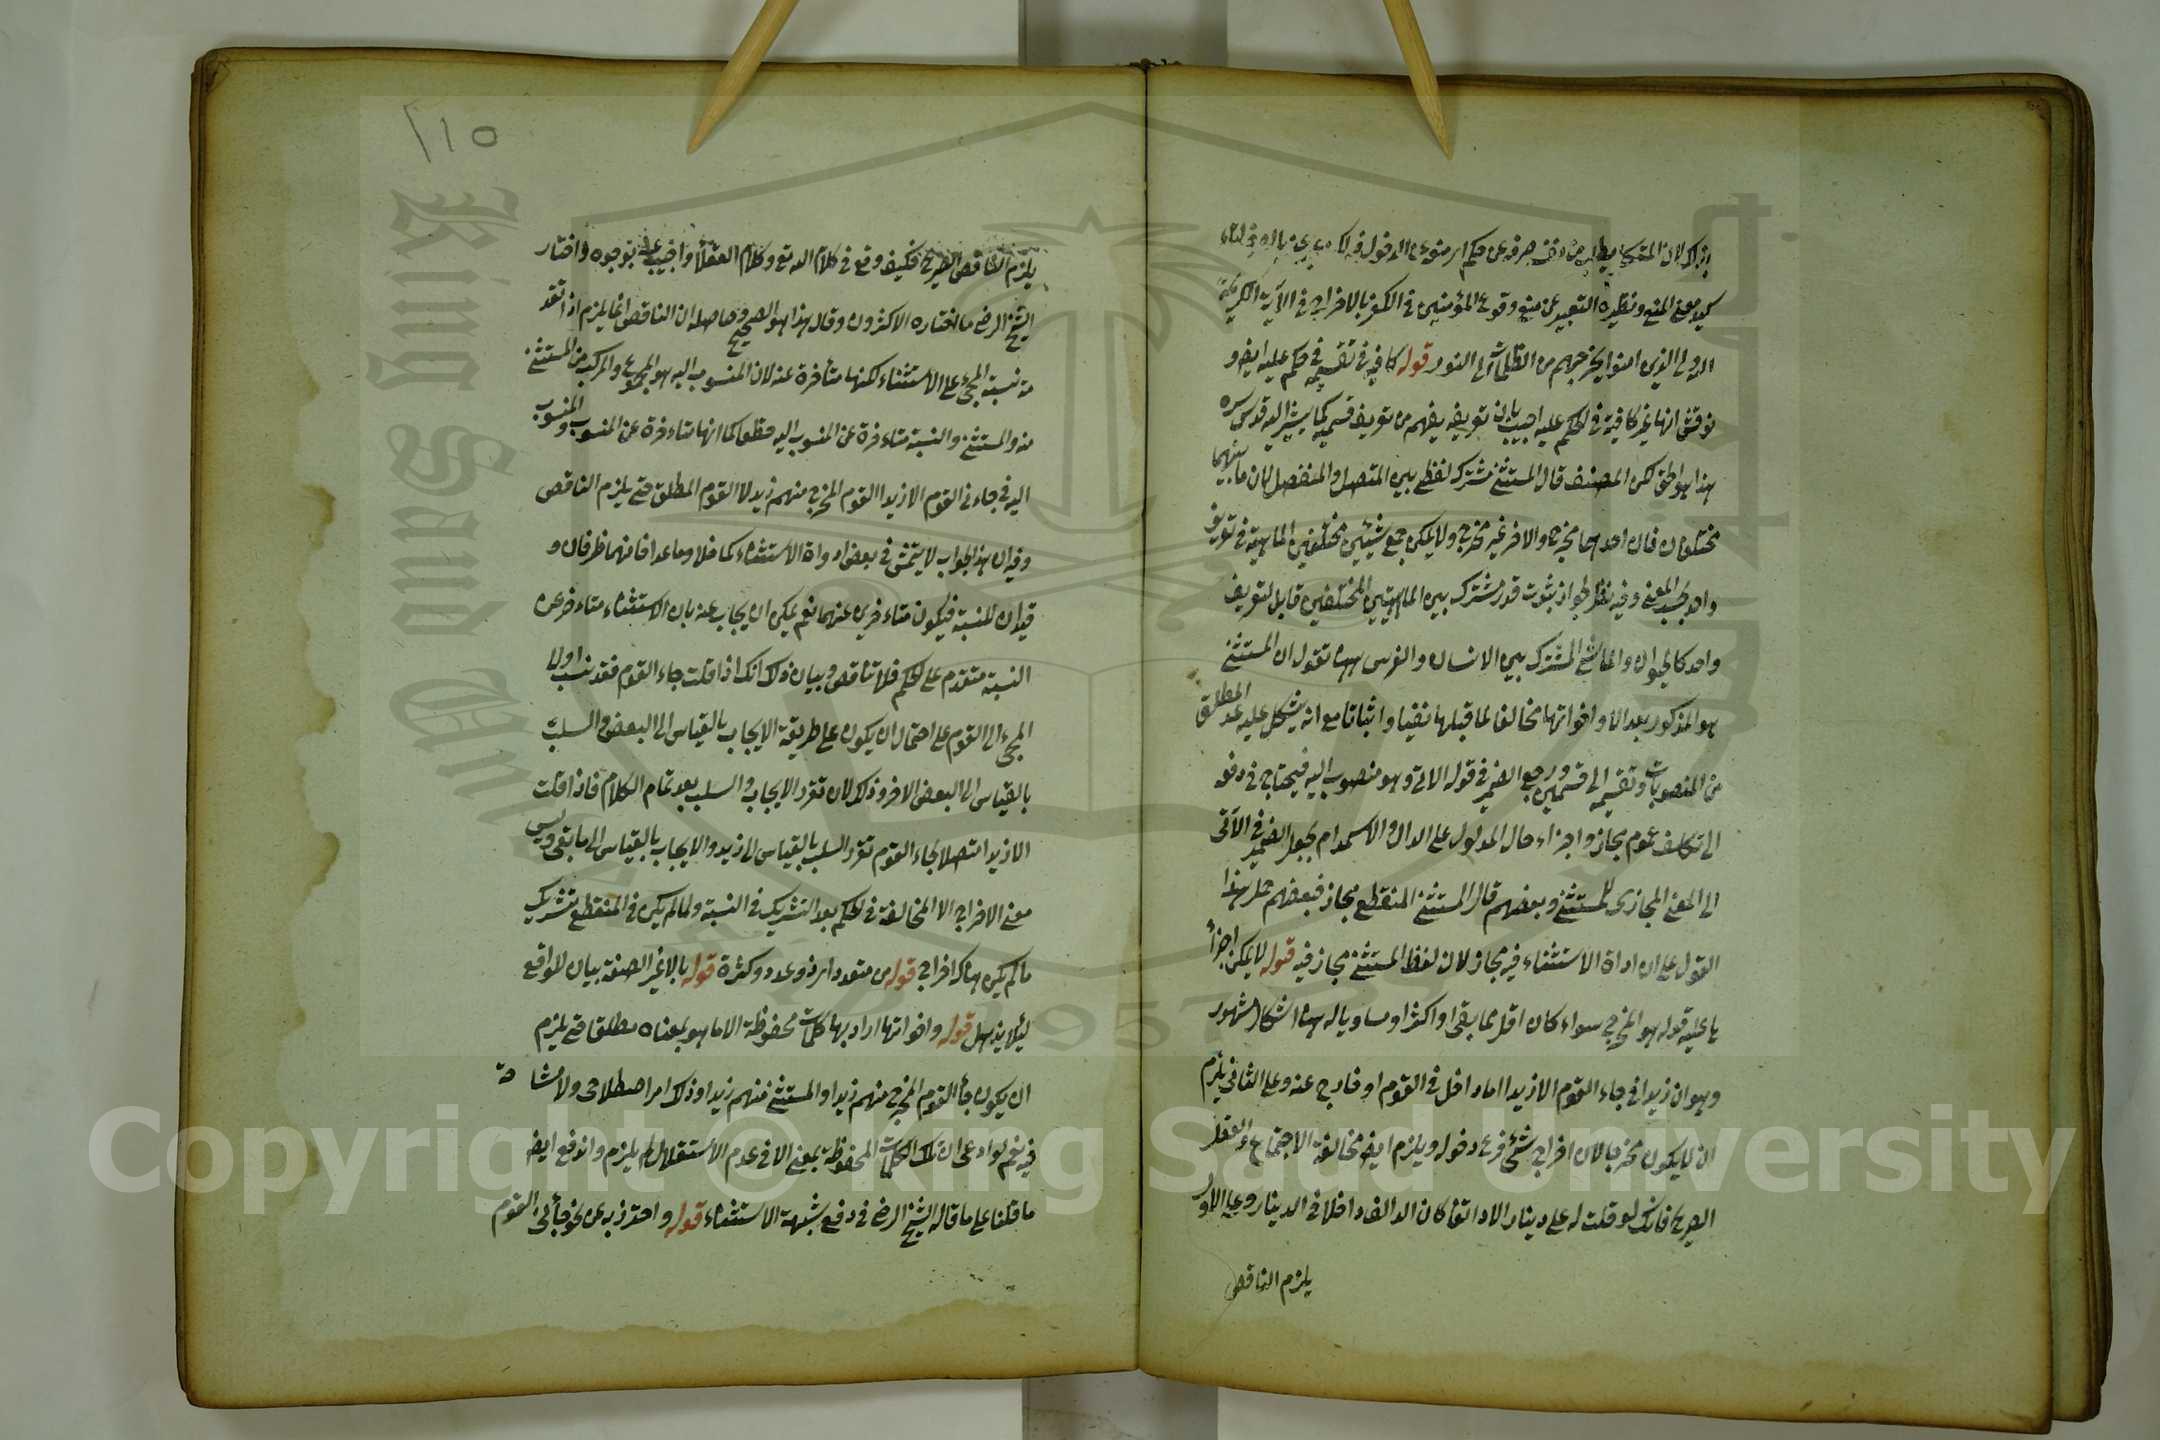 كيد معنى المنع ونظيره التعبير عن منع وقوع المؤمنين في الكفر بالاخراج في الآية الكريمة
الله ولي الذين امنوا يخرجهم من الظلمات الى النور قوله كافية في تقسيمه في حكم عليه ايض و
نوقش انها غير كافية في الحكم عليه اجيب بان تعريفه يفهم من تعريف قسميه كما يشير اليه قدس سره
هذا هو الحق لكن المصنف قال المستثنى مشترك لفظي بين المتصل والمنفصل لان ما بينهما
مختلفان فان احدهما مخرج والاخر غير مخرج ولا يمكن جمع شيئين مختلفين الماهية في تعريف
واحد بحسب المعنى وفيه نظر لجواز ثبوت قدر مشترك بين الماهيتين المختلفين قابل لتعريف
واحد كالحيوان والماشي المشترك بين الانسان والفرس ههنا نقول ان المستثنى
هو المذكور بعد الا واخواتها مخالفا لما قبلها نفيا واثباتا مع انه يشكل عليه عد المطلق
من المنصوبات وتقسيمه الى قسمين ورجع الضمير في قوله الاتي وهو منصوب اليه فيحتاج في دفعه
الى تكلف عموم مجاز واجراء حال المدلول على الدال والاستخدام بجعل الضمير في الآتي
الى المعنى المجازي للمستثنى وبعضهم قال المستثنى المنقطع مجاز فبعضهم حمل هذا
القول على ان اداة الاستثناء فيه مجاز لان لفظ المستثنى مجاز فيه قوله لا يمكن اجراء
ما عليه قوله هو المخرج سواء كان اقل مما بقي او اكثر او مساويا له ههنا اشكال مشهور
وهو ان زيدا في جاء القوم الا زيدا اما داخل في القوم او خارج عنه وعلى الثاني يلزم
ان لا يكون مخرجا لان اخراج شئ فرع دخوله ويلزم ايض مخالفة الاجماع والعقل
الصريح فانك لو قلت له على دينار الا دانقا كان الدانق داخلا في الدينار وعلى الاول
يلزم التناقض
١١٥
يلزم التناقض الصريح فكيف وقع في كلام الله تع وكلام العقلاء واجيب عنه بوجوه واختار
الشيخ الرضي ما اختاره الاكثرون وقال هذا هو الصحيح وحاصله ان التناقض انما يلزم اذا تقد
مة نسبة المجئ على الاستثناء لكنها متأخرة عنه لان المنسوب اليه هو المجموع والمركب من المستثنى
منه والمستثنى والنسبة متاءخرة عن المنسوب اليه قطعا كما انها متاءخرة عن المنسوب والمنسوب
اليه في جاءني القوم الا زيدا القوم المخرج منهم زيد لا القوم المطلق حتى يلزم التناقض
وفيه ان هذا الجواب لا يتمشى في بعض ادواة الاستثناء كما خلا وما عدا فانهما ظرفان و
قيدان للنسبة فيكون متاءخرين عنهما نعم يمكن ان يجاب عنه بان الاستثناء متاءخر عن
النسبة متقدم على الحكم فلا تناقض وبيان ذلك انك اذا قلت جاء القوم فقد نسب اولا
المجئ الى القوم على احتمال ان يكون على طريقة الايجاب بالقياس الى البعض والسلب
بالقياس الى البعض الاخر وذلك لان تقرر الايجاب والسلب بعد تمام الكلام فاذا قلت
الا زيدا متصلا بجاء القوم تقرر السلب بالقياس الى زيد والايجاب بالقياس الى ما بقي وليس
معنى الاخراج الا المخالفة في الحكم بعد التشريك في النسبة ولما لم يكن في المنقطع تشريك
ما لم يكن هناك اخراج قوله من متعدد اى ذو عدد وكثرة قوله بالا غير الصفة بيان للواقع
ليئلا يذهل قوله واخواتها اراد بها كلمات محفوظة الا ما هو بمعناه مطلقا حتى يلزم
ان يكون جاء القوم المخرج منهم زيدا والمستثنى منهم زيدا وذلك امر اصطلاحي ولا مشاحة
فيه نعم لو ادعى ان تلك الكلمات المحفوظة بمعنى الا في عدم الاستقلال لم يلزم واندفع ايض
ما قلنا على ما قاله الشيخ الرضي في دفع شبهة الاستثناء قوله واحترز به عن نحو جاءني القوم
King Saud University
1957
Copyright © King Saud University